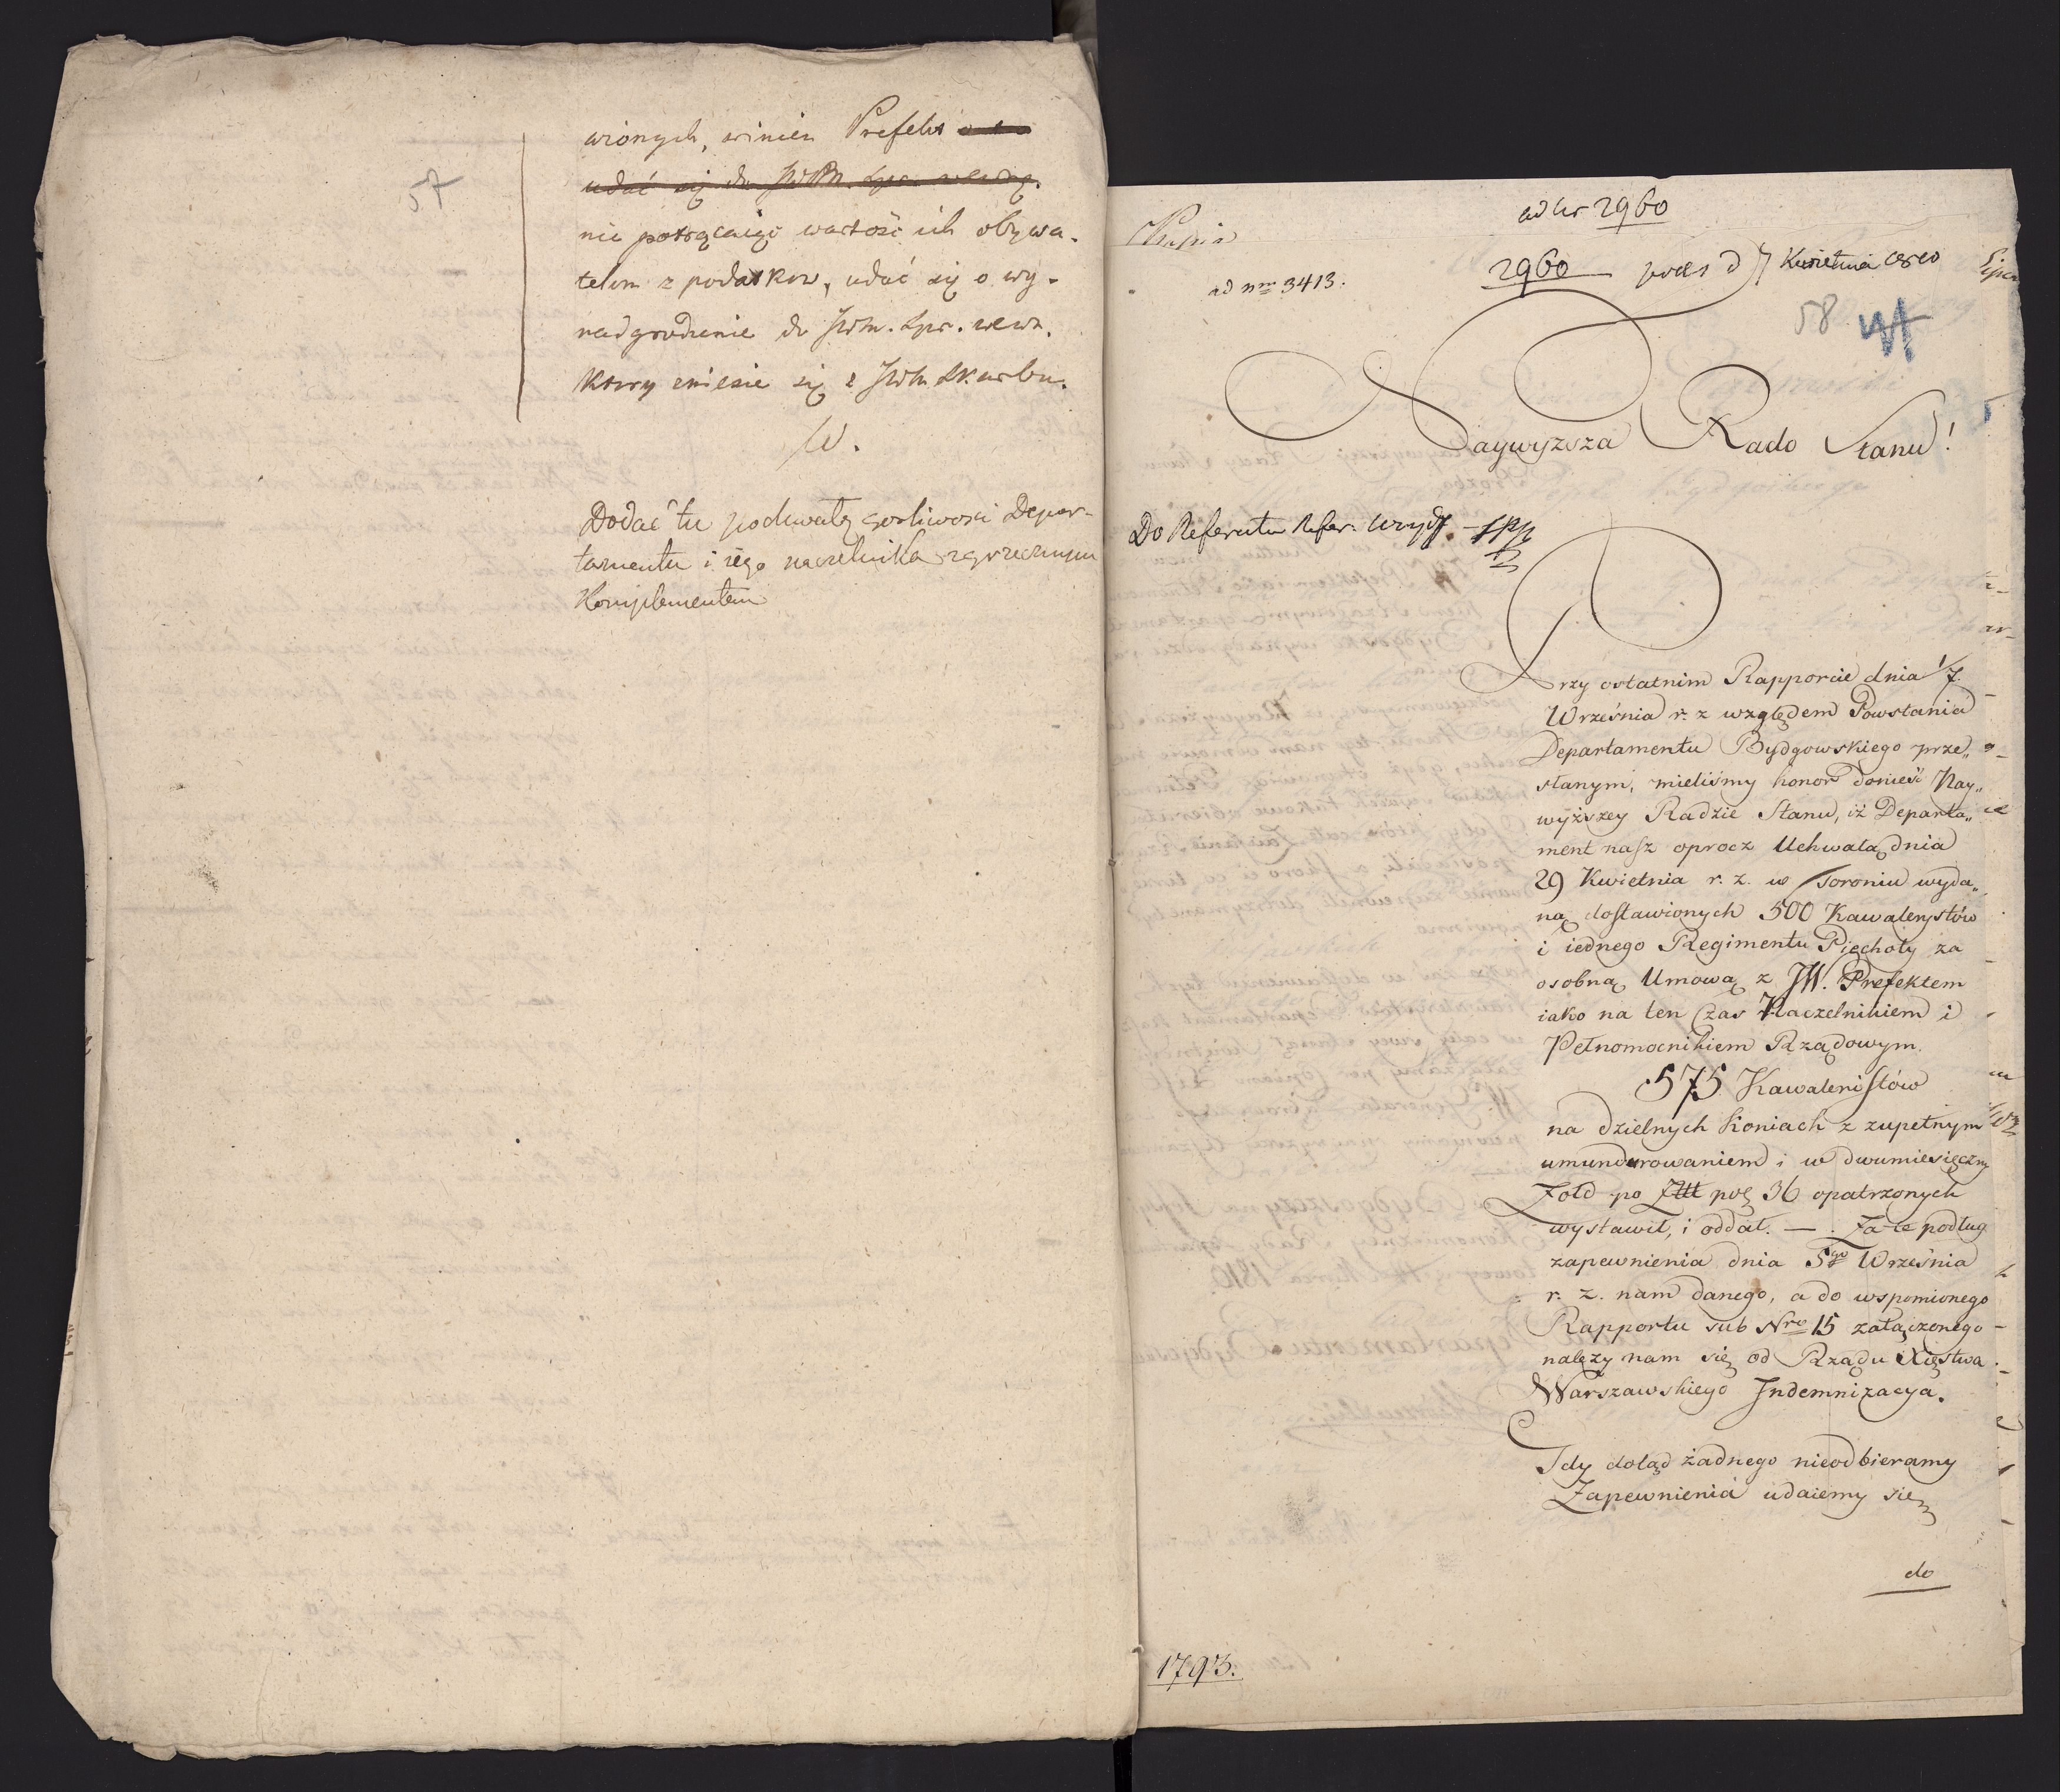 57
wionych, winien Prefekt
udać się do JWM. Spr. wewnę.
nie potrącaiąc wartość ich obywa-
telom z podatkow, udać się o wy-
nadgrodzenie do JWM. Spr. wewn.
ktory zniesie się z JWM Skarbu.
W.
Dodać tu pochwałę gorliwości Depar-
tamentu i iego naczelnika zgrzecznym
Komplementem
Kopia
ad Nr 2960
ad nrm 3413.
2960 praes d 7 Kwietnia 1810
58
Naywyzsza Rado Stanu!
Do Referatu Refer:
Przy ostatnim Rapporcie dnia 17
Września r. z względem Powstania
Departamentu Bydgowskiego prze„
słanym, mieliśmy honor donieść Nay„
wyższey Radzie Stanu, iż Departa„
ment nasz oprocz Uchwałą dnia
29 Kwietnia r. z. w Toroniu wyda„
ną dostawionych 500 Kawalerystów
i iednego Regimentu Piechoty za
osobną Umową z JW. Prefektem
iako na ten Czas Naczelnikiem i
Pełnomocnikiem Rządowym.
575 Kawaleristów
na dzielnych Koniach z zupełnym
umundurowaniem i w dwumiesięczny
Żołd po Złtt pol 36 opatrzonych
wystawił, i oddał. — . Za te podług
zapewnienia dnia 5go Września
r. z. nam danego, a do wspomionego
Rapportu sub Nro 15 załączonego
należy nam się od Rządu Xięstwa
Warszawskiego Indemnizacya.
Gdy dotąd żadnego nieodbieramy
Zapewnienia udaiemy się
do
1793.